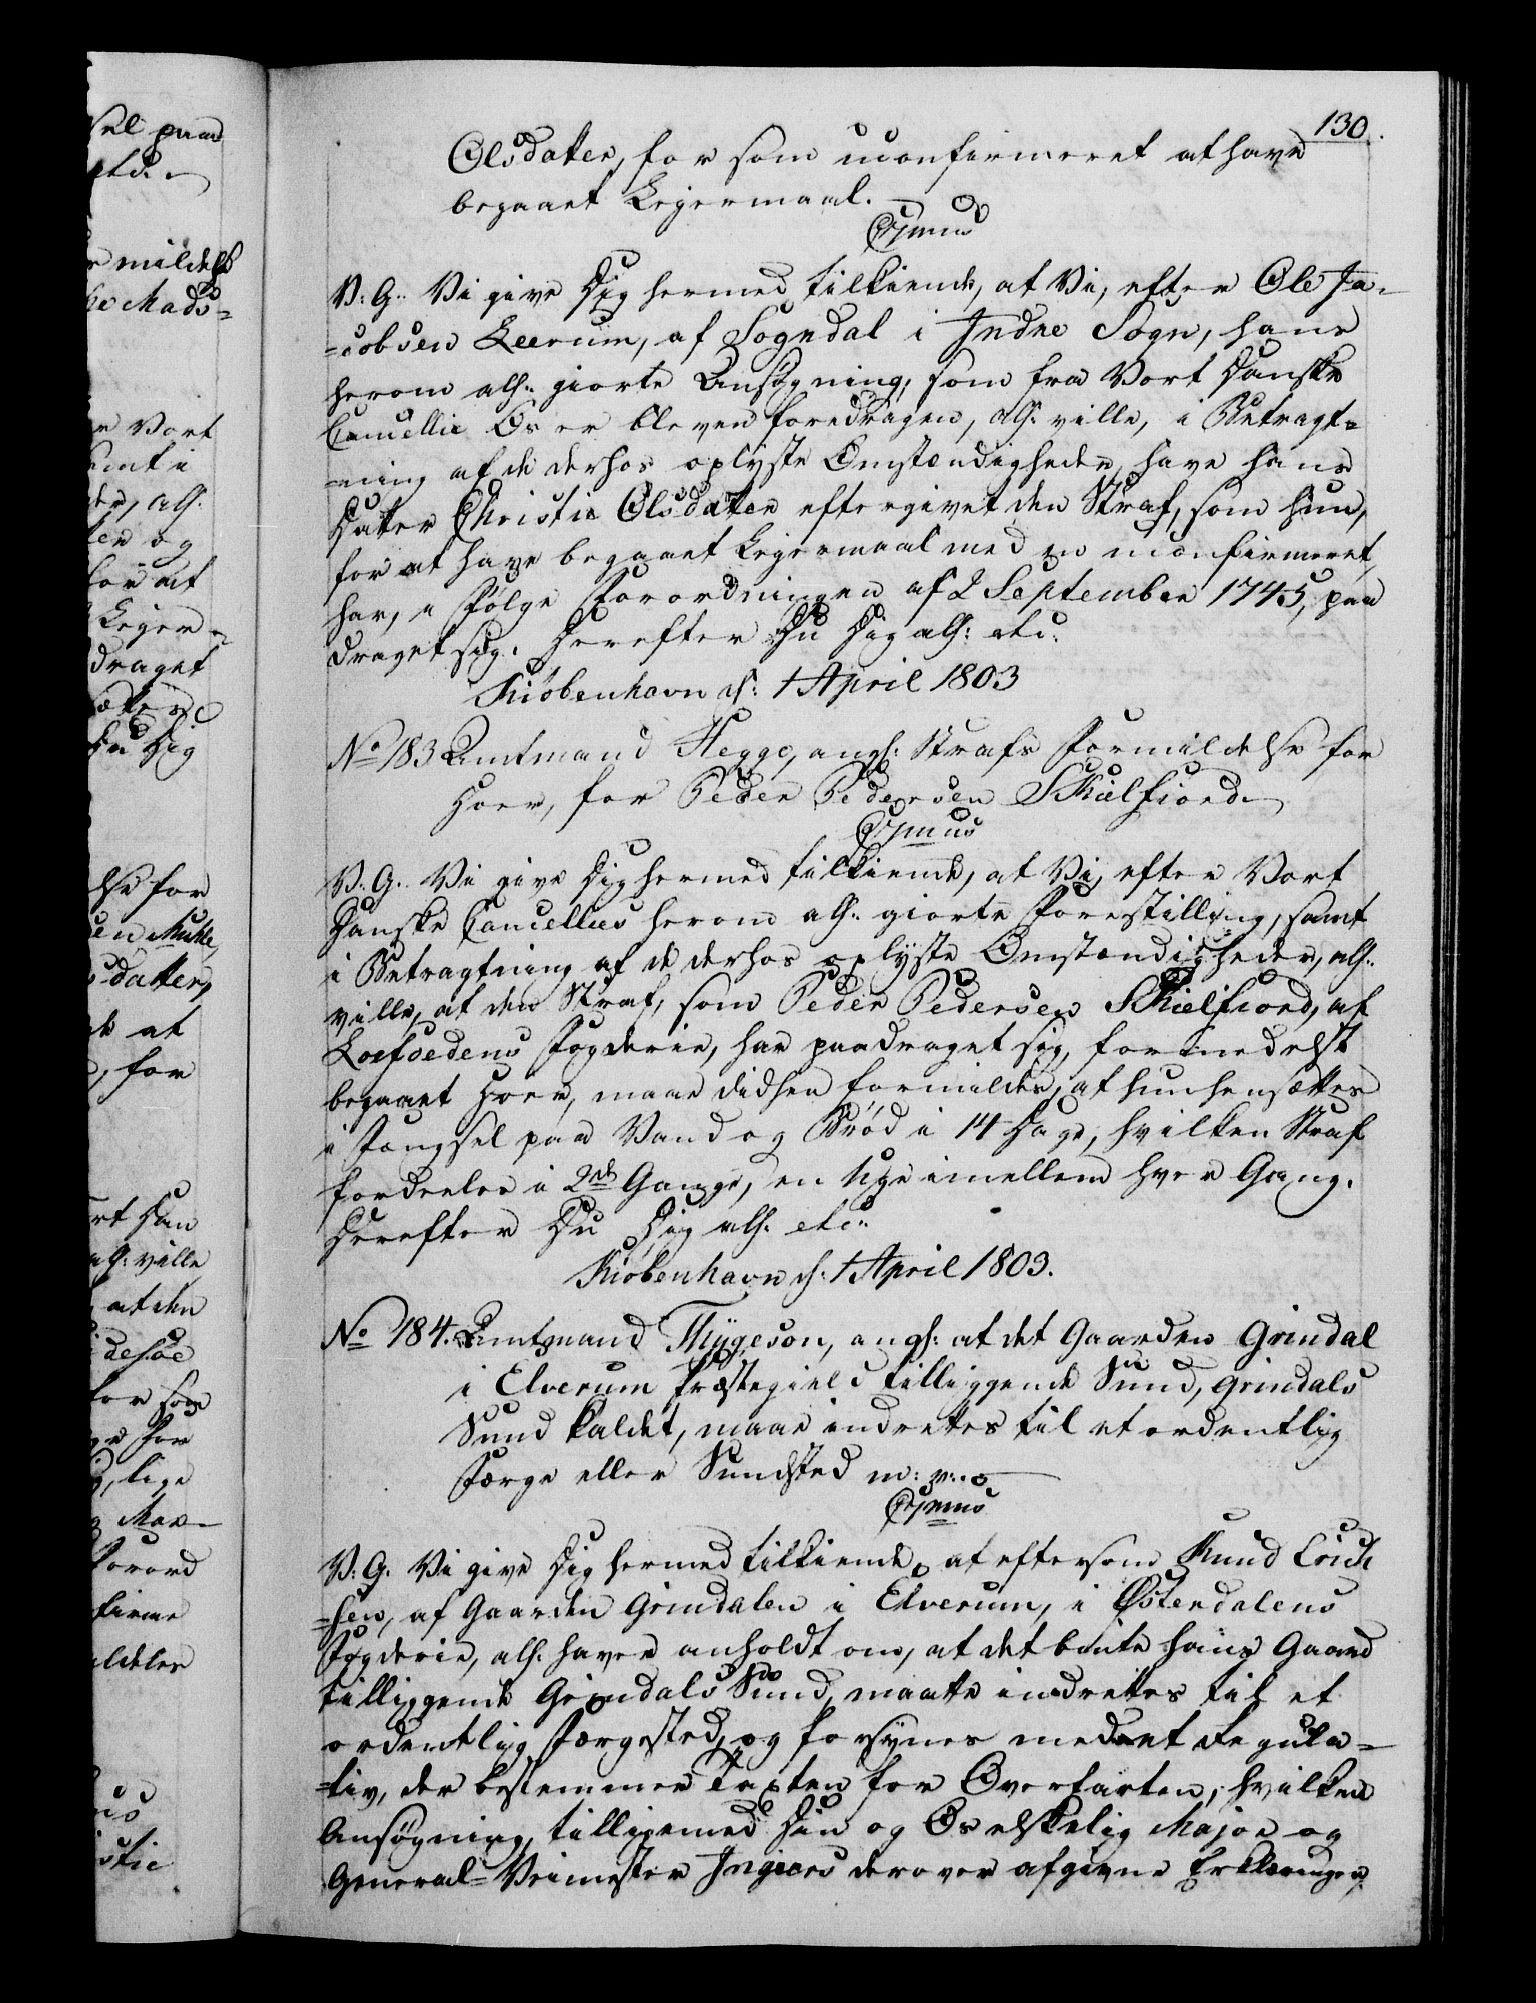 130.
Olsdatter, for som uconfirmeret at have
begaaet Leiermaal.
V: G: Vi give Dig hermed tilkiende, at Vi, efter Ole Ja-
=cobsen Leerum, af Sogndal i Indre Sogn, hans
herom alls: giorte Ansøgning, som fra Vort Danske
Cancellie Os er bleven foredragen, alls: ville, i Betragt=
=ning af de derhos oplyste Omstændigheder, have hans
Datter Christie Olsdatter eftergivet den Straf, som hun,
for at have begaaet Leiermaal med en uconfirmeret,
har, i Følge Forordningen af 2 September 1745, paa
draget sig. Herefter Du Dig alls: etc:
Kiöbenhavn d: 1 April 1803
No 183 Amtmand Hegge, angl: Strafs Formildelse for
Hoer, for Peder Pedersen Skielfiord
V: G: Vi give Dig hermed tilkiende, at Vi, efter Vort
Danske Cancellies herom alls: giorte Forestilling, samt
i Betragtning af de derhos oplyste Omstændigheder, alls:
ville, at den Straf, som Peder Pedersen Skielfiord, af
Loefoedens Fogderie, har paadraget sig, formedelst
begaaet Hoer, maae didhen formildes, at hun hensættes
i Fængsel paa Vand og Brød i 14 Dage, hvilken Straf
fordeeles i 2de Gange, en Uge imellem hver Gang.
Derefter Du Dig alls: etc:
Kiöbenhavn d: 1 April 1803.
No 184. Amtmand Thygeson, angl: at det Gaarden Grindal
i Elverum Præstegield tilliggende Sund, Grindals
Sund kaldet, maae indrettes til et ordentlig
Færge eller Sundsted m: v:
V: G: Vi give Dig hermed tilkiende, at eftersom Knud Erich
=sen, af Gaarden Grindalen i Elverum, i Østerdalens
Fogderie, alls: haver anholdt om, at det bemte hans Gaard
tilliggende Grindals Sund, maatte indrettes til et
ordentlig Færgested, og forsynes med et Regula=
=tiv, der bestemmer Taxten for Overfarten; hvilken
Ansøgning, tilligemed Din og Os elskelig Major og
General-Veimester Ingiers derover afgivne Erklæringer,